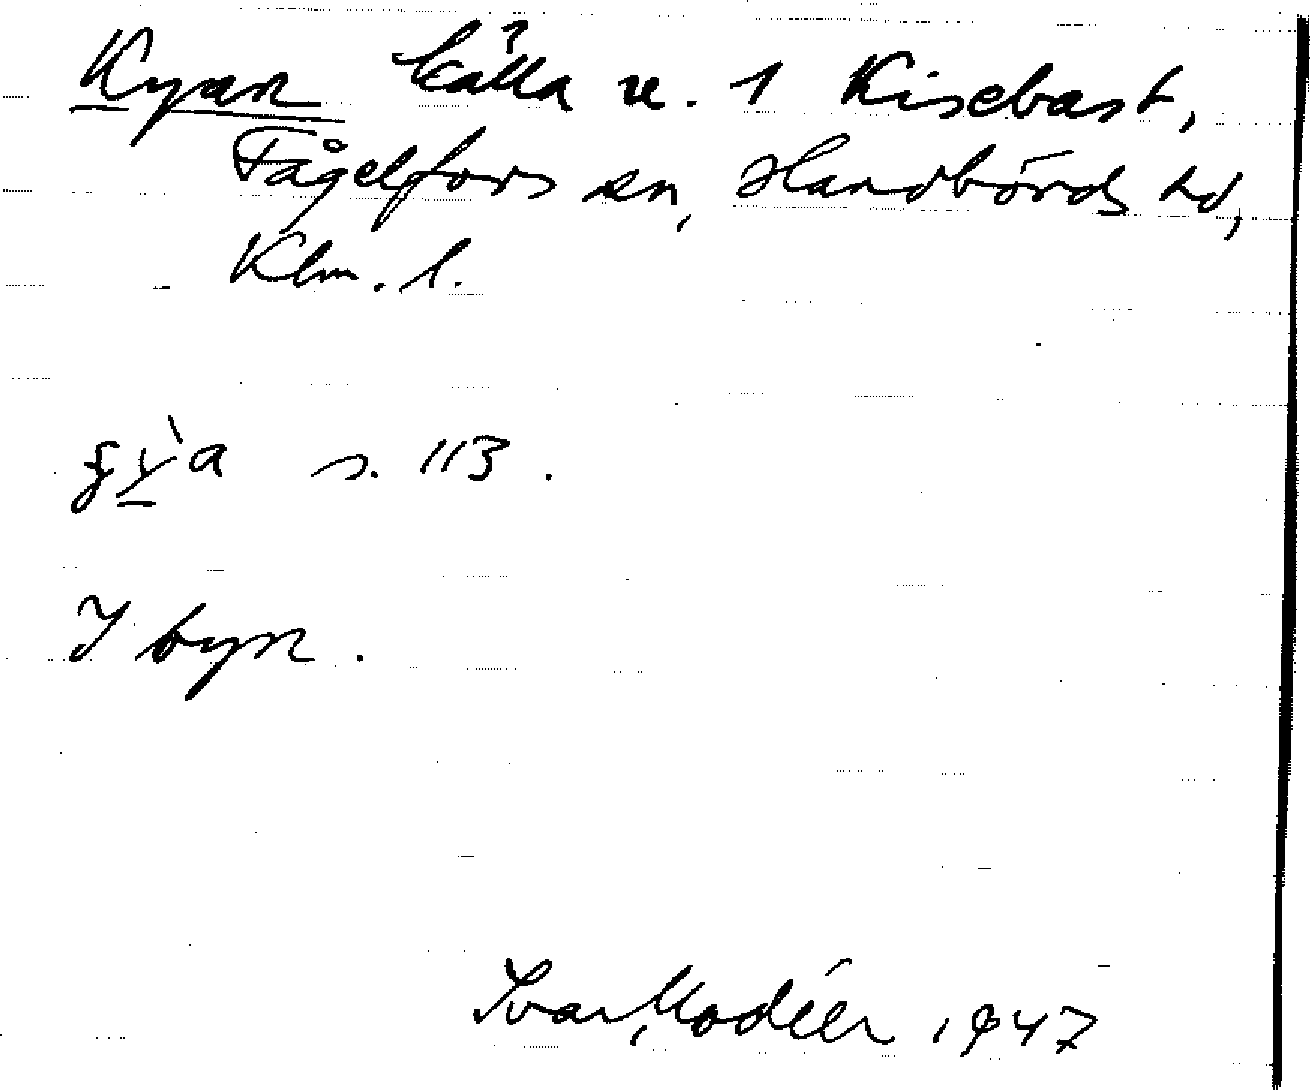 Kyan källa n. 1 Kisebast,
Fågelfors sn, Handbörds hd,
Klm. l.
s. 113.
I byn.
Ivar Modéer 1947